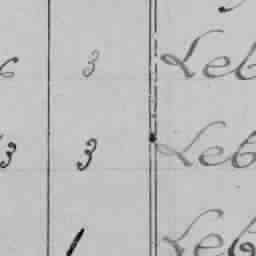 3 Leb
3 3 Leb
1 Leb